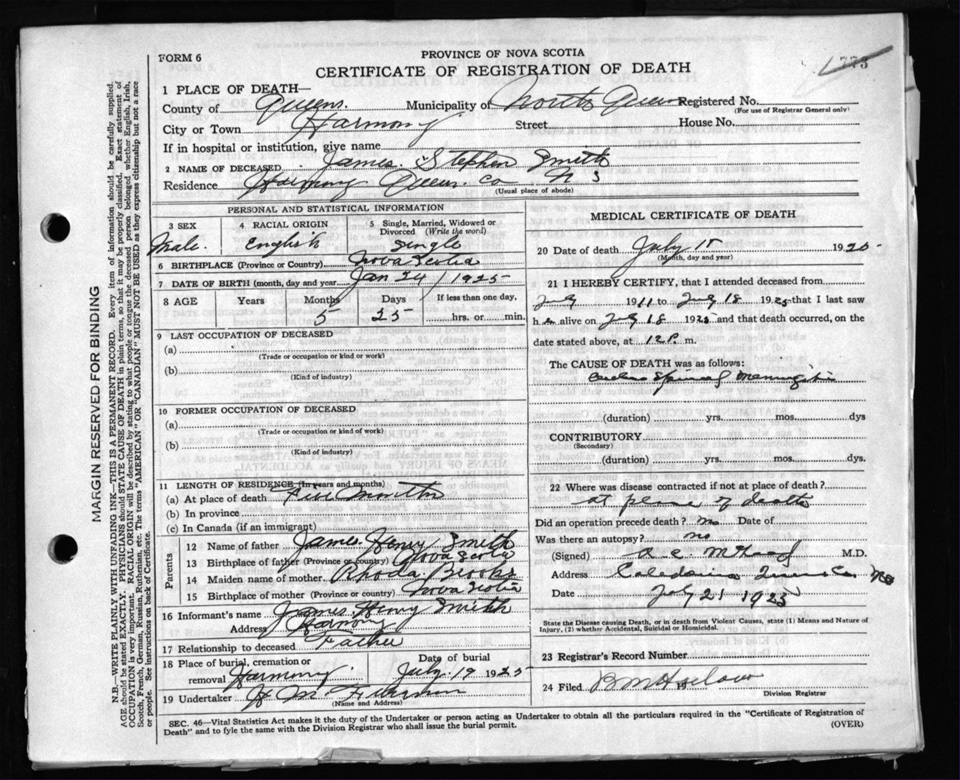 FORM 6
PROVINCE OF NOVA SCOTIA
773
CERTIFICATE OF REGISTRATION OF DEATH
1 PLACE OF DEATH—
County of Queens. Municipality of North Queens Registered No.
(For use of Registrar General only)
City or Town Harmony Street House No.
If in hospital or institution, give name
2 NAME OF DECEASED James Stephen Smith
Residence Harmony Queens Co N S
(Usual place of abode)
PERSONAL AND STATISTICAL INFORMATION
3 SEX 4 RACIAL ORIGIN 5 Single, Married, Widowed or Divorced (Write the word)
Male. English Single
6 BIRTHPLACE (Province or Country) Nova Scotia
7 DATE OF BIRTH (month, day and year) Jan 24 / 1925
8 AGE Years Months Days If less than one day,
5 25 hrs. or min.
9 LAST OCCUPATION OF DECEASED
(a)
(Trade or occupation or kind or work)
(b)
(Kind of industry)
10 FORMER OCCUPATION OF DECEASED
(a)
(Trade or occupation or kind of work)
(b)
(Kind of industry)
11 LENGTH OF RESIDENCE (In years and months)
(a) At place of death Five Months
(b) In province
(c) In Canada (if an immigrant)
Parents
12 Name of father James Henry Smith
13 Birthplace of father (Province or country) Nova Scotia
14 Maiden name of mother Rhoda Brooks
15 Birthplace of mother (Province or country) Nova Scotia
16 Informant's name James Henry Smith
Address Harmony
17 Relationship to deceased Father
18 Place of burial, cremation or removal Harmony Date of burial July 19 1925
19 Undertaker
(Name and Address)
MEDICAL CERTIFICATE OF DEATH
20 Date of death July 18 1925
(Month, day and year)
21 I HEREBY CERTIFY, that I attended deceased from
July 19 11 to July 18 1925 that I last saw
h alive on July 18 1925 and that death occurred, on
date stated above, at 12 P. m.
The CAUSE OF DEATH was as follows:
Spinal Meningitis
(duration) yrs. mos. dys
CONTRIBUTORY
(Secondary)
(duration) yrs. mos. dys.
22 Where was disease contracted if not at place of death?
at place of death
Did an operation precede death? no Date of
Was there an autopsy? no
(Signed) M.D.
Address Caledonia Queens Co NS
Date July 21 1925
State the Disease causing Death, or in death from Violent Causes, state (1) Means and Nature of
Injury, (2) whether Accidental, Suicidal or Homicidal.
23 Registrar's Record Number
24 Filed
Division Registrar
SEC. 46—Vital Statistics Act makes it the duty of the Undertaker or person acting as Undertaker to obtain all the particulars required in the "Certificate of Registration of
Death" and to fyle the same with the Division Registrar who shall issue the burial permit.
(OVER)
MARGIN RESERVED FOR BINDING
N.B.—WRITE PLAINLY WITH UNFADING INK—THIS IS A PERMANENT RECORD. Every item of information should be carefully supplied.
AGE should be stated EXACTLY. PHYSICIANS should STATE CAUSE OF DEATH in plain terms, so that it may be properly classified. Exact statement of
OCCUPATION is very important. RACIAL ORIGIN will be described by stating to what people or tongue the deceased person belonged, whether English, Irish,
Scotch, French, German, Russian, Ruthenian, etc. The terms "AMERICAN" OR "CANADIAN" MUST NOT BE USED as they express citizenship but not a race
or people. See instructions on back of Certificate.